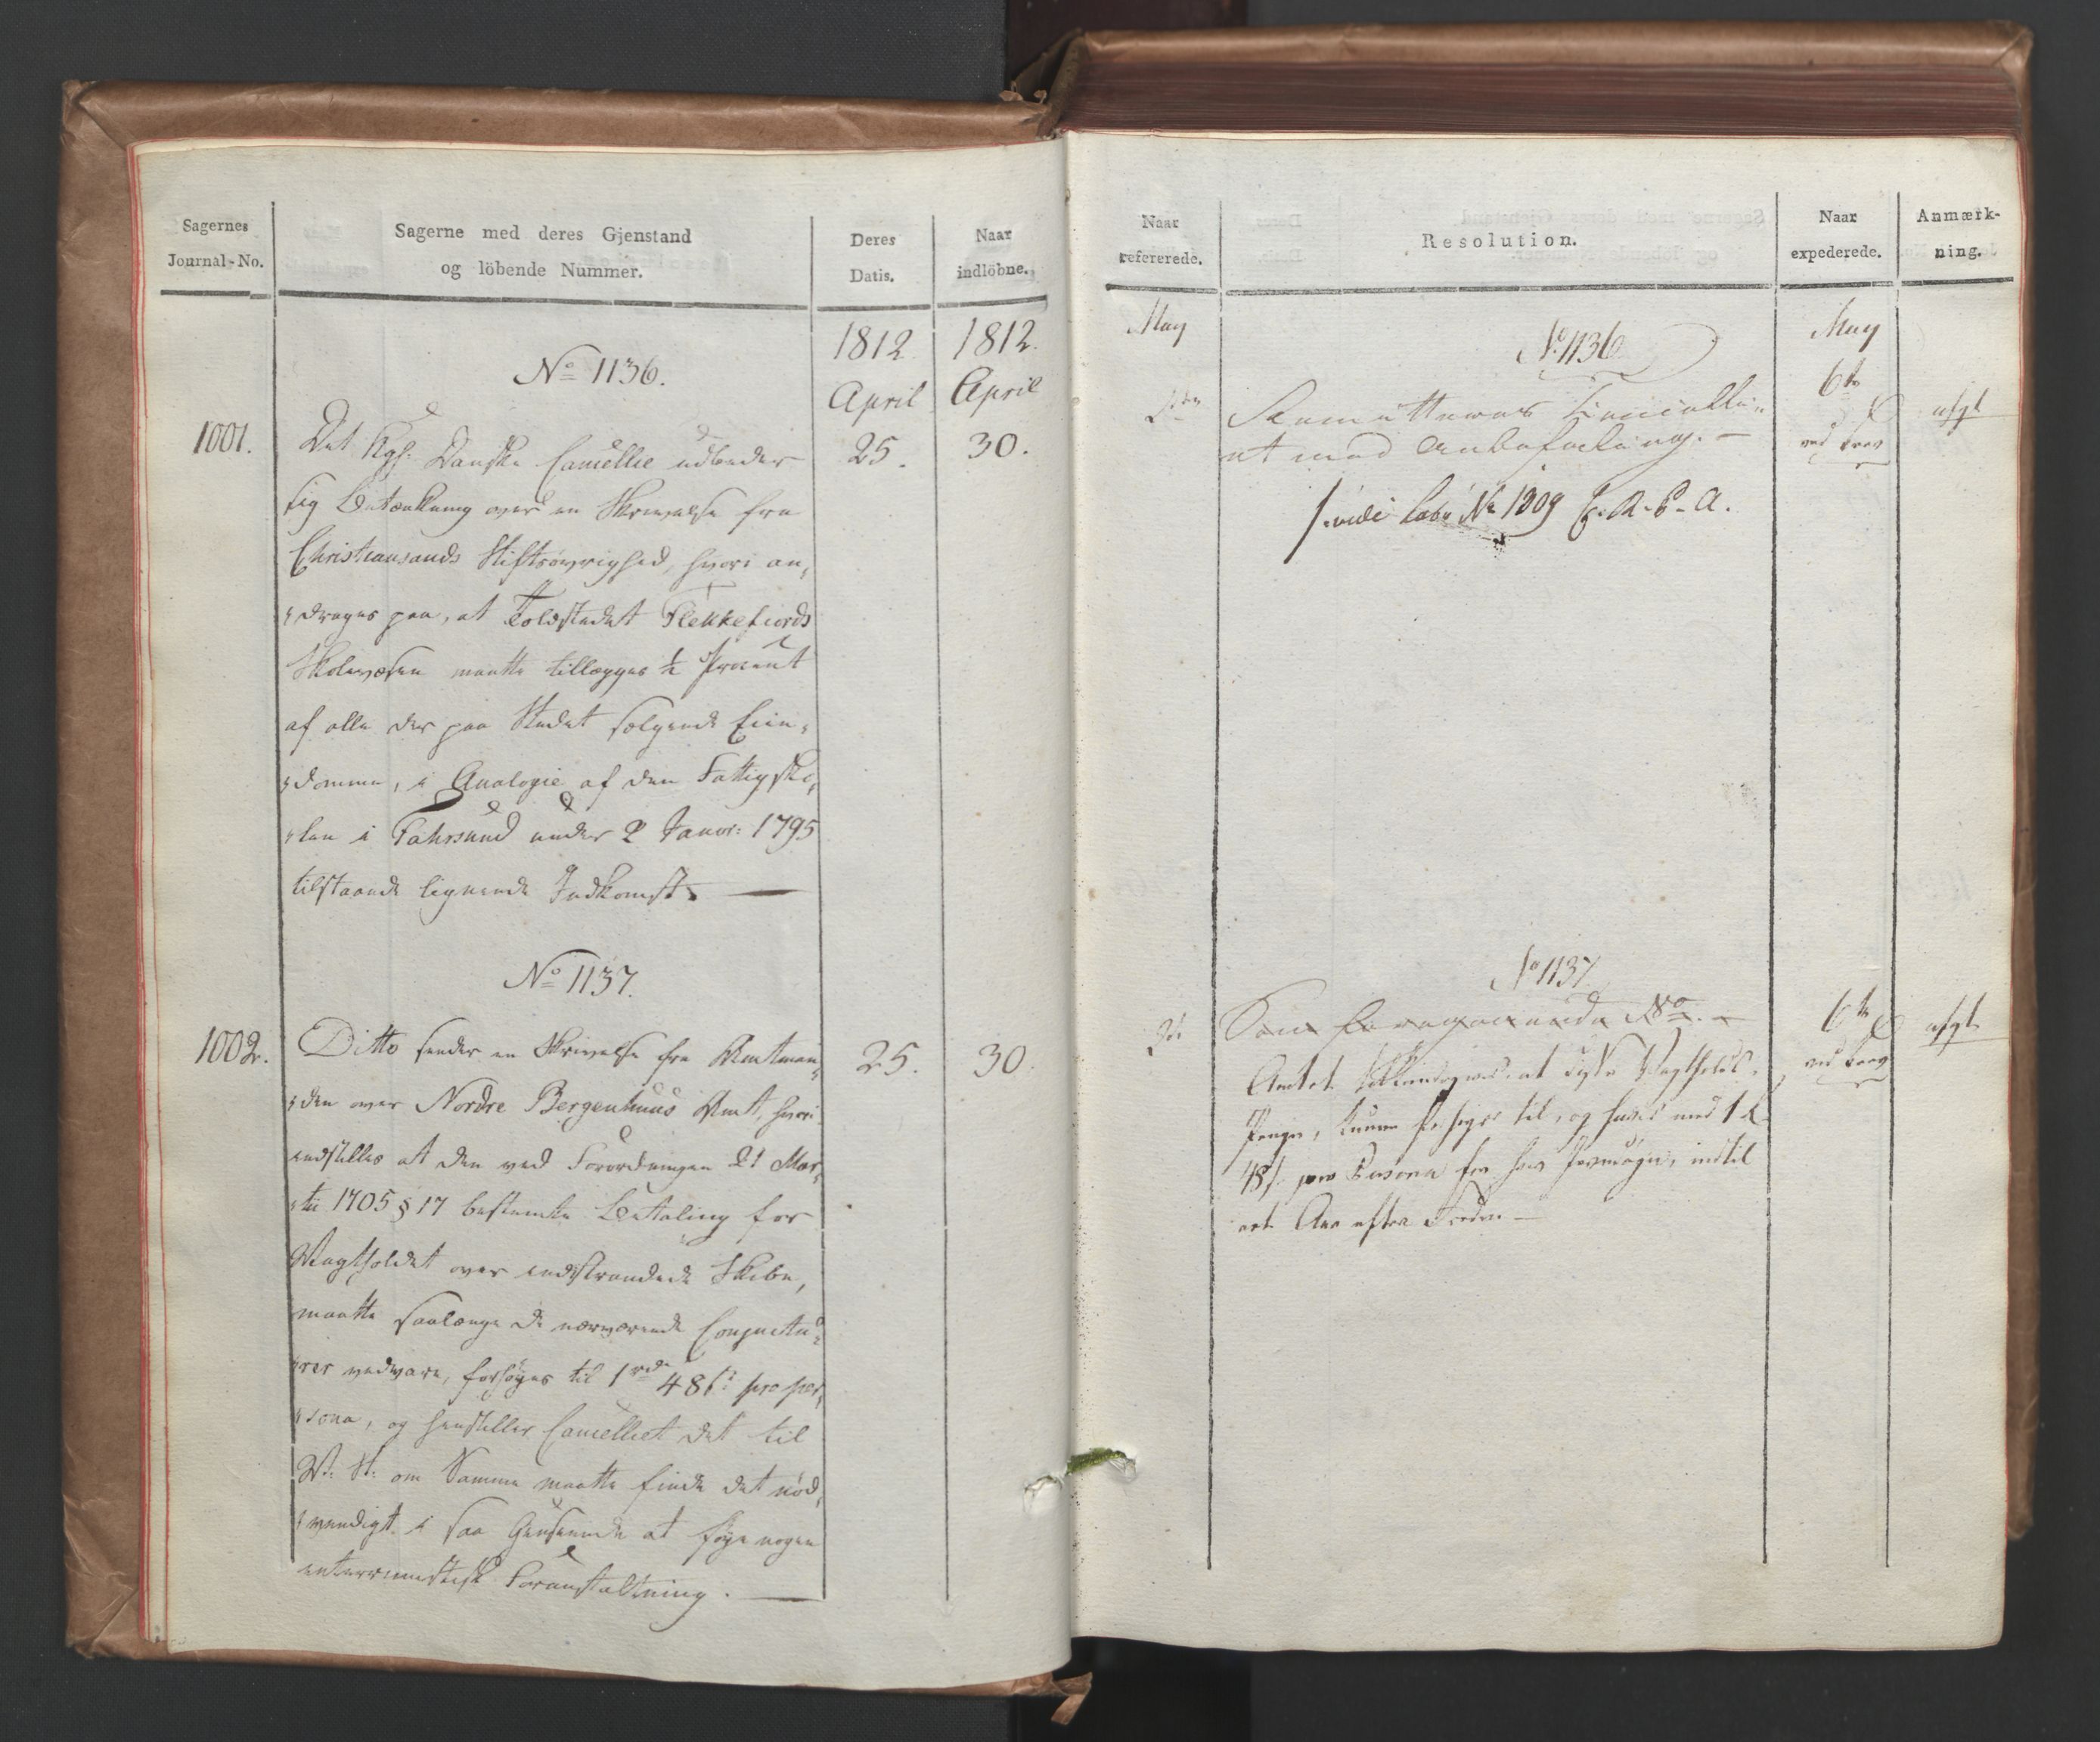 Sagernes
Journal-No.
Sagerne med deres Gjenstand
og löbende Nummer.
Deres
Datis.
Naar
indlöbne.
1812.
April
1812.
April
No 1136.
1001.
Det Kgl. Danske Cancellie udbeder
25.
30.
sig Betænkning over en Skrivelse fra
Christiansands Stiftsøvrighed, hvori an„
„drages paa, at Toldstedet Flekkefiords
Skolevæsen maatte tillægges ½ Procent
af alle der paa Stedet sælgende Eien„
„domme, i Analogie af den Fattigsko„
„len i Fahrsund under 2 Januar: 1795
tilstaaede lignende Indkomst. —
No 1137.
1002.
Ditto sender en Skrivelse fra Amtman„
25.
30.
„den over Nordre Bergenhuus Amt, hvori
indstilles at den ved Forordningen 21 Mar„
„tii 1705 § 17 bestemte Betaling for
Vagtholdet over indstrandede Skibe,
maatte saalænge de nærværende Conjunctu„
„rer vedvare, forhøyes til 1 rd 48 s: pro per„
„sona, og henstiller Cancelliet det til
om Samme maatte finde det nød„
„vendigt i saa Henseende at føye nogen
interimistisk Foranstaltning. —
Naar
refererede.
Resolution.
Naar
expederede.
Anmærk-
ning.
May
May
No 1136
6te
Cancellie„
et med Anbefaling. —
ved Brev
vide No 1909
No 1137
Som foregaaende No. —
6te
Amtet at
ved Brev
Penge, kunne forhøyes til, og haves med 1 Rd
48 s. pro Persona for hver indtil
et Aar efter Freden. —